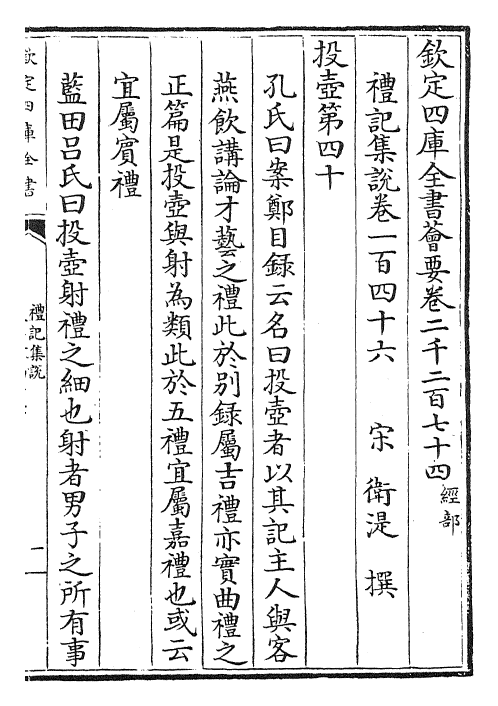 欽定四庫全書薈要卷二千二百七十四經部
禮記集說卷一百四十六　宋　衛湜　撰
投壺第四十
孔氏曰案鄭目録云名曰投壺者以其記主人與客
燕飲講論才藝之禮此於别録屬吉禮亦實曲禮之
正篇是投壺與射為類此於五禮宜屬嘉禮也或云
宜屬賓禮
藍田吕氏曰投壺射禮之細也射者男子之所有事
欽定四庫全書
禮記集說
二